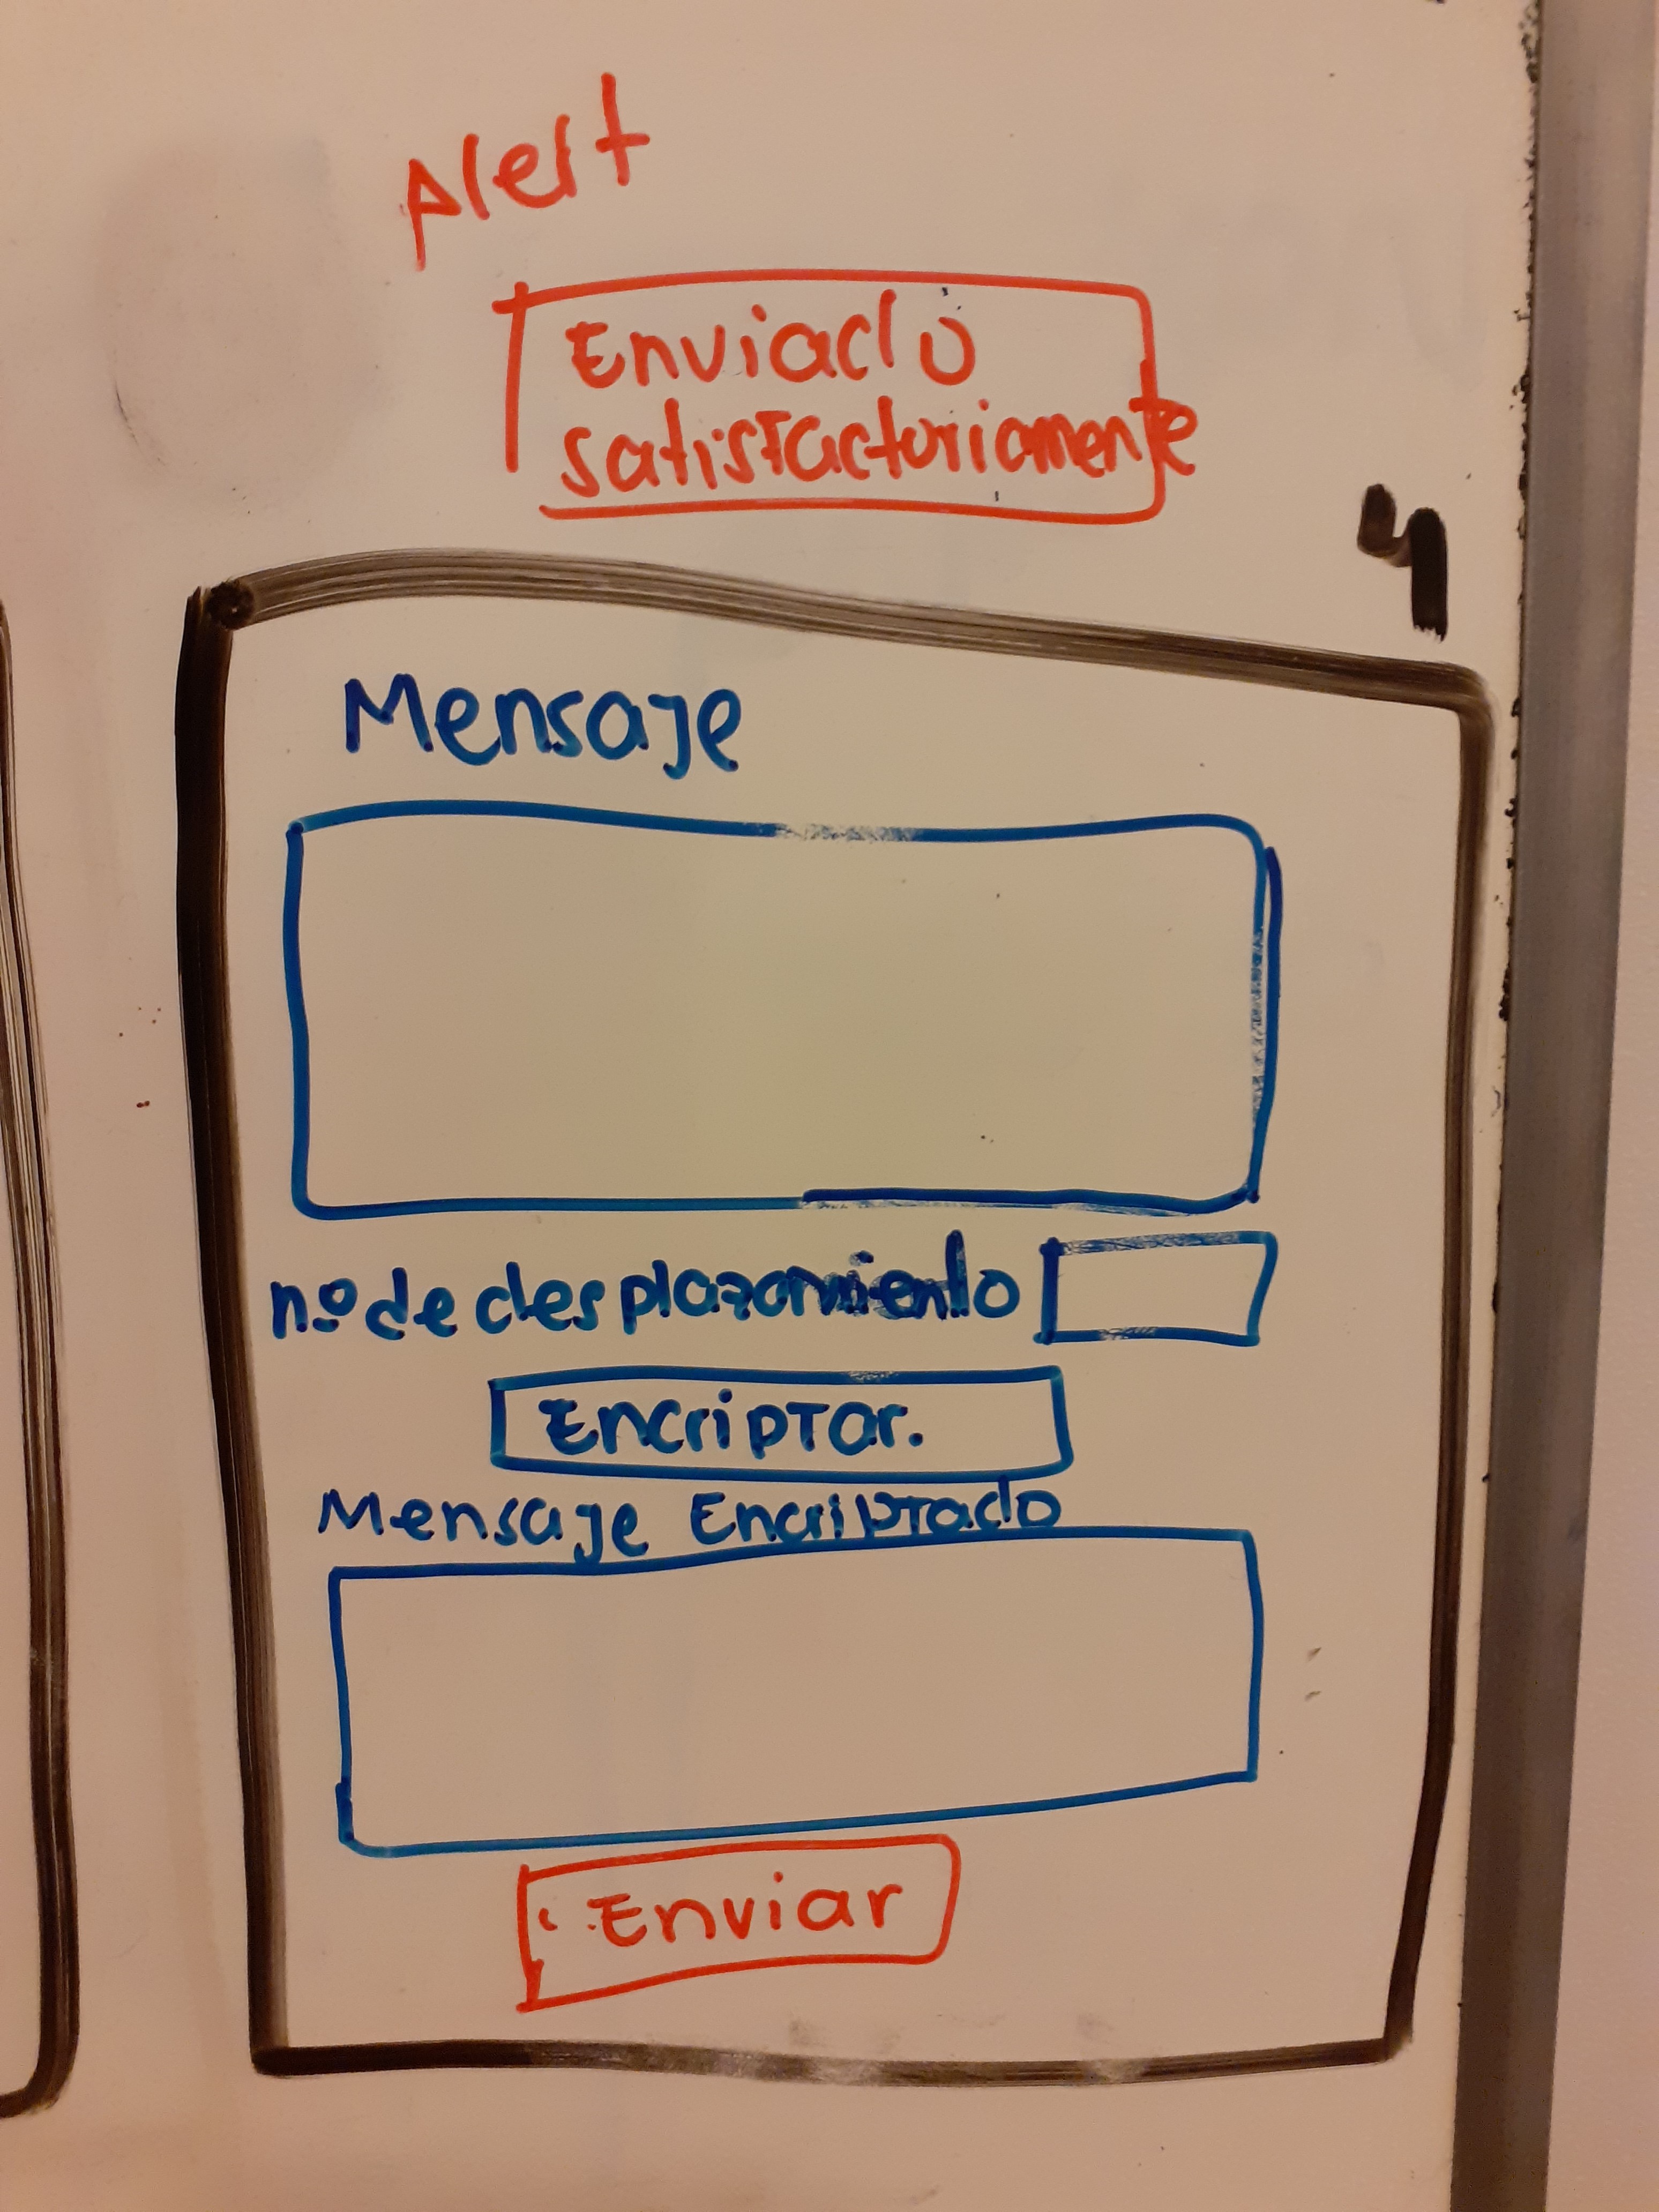 Alert
Enviado
satisfactoriamente
4
Mensaje
nº de desplazamiento
Encriptar.
Mensaje Encriptado
Enviar